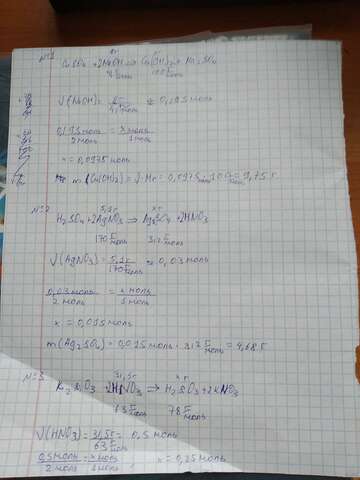 N=1
CuSO4 + 2NaOH ⇒ Cu(OH)2 + Na2SO4
ν(NaOH) = ≈ 0,195 моль
0,195 моль / 2 моль = x моль / 1 моль
x = 0,0975 моль
m(Cu(OH)2) = ν·Mr = 0,0975 · 100 = 9,75 г
N=2
5,1г xг
H2SO4 + 2AgNO3 ⇒ Ag2SO4 + 2HNO3
170 г/моль 312 г/моль
ν(AgNO3) = 5,1г / 170 г/моль ≈ 0,03 моль
0,03 моль / 2 моль = x моль / 1 моль
x = 0,015 моль
m(Ag2SO4) = 0,015 моль · 312 г/моль = 4,68 г
N=3
31,5г xг
63 г/моль 78 г/моль
ν(HNO3) = 31,5г / 63 г/моль = 0,5 моль
0,5 моль / 2 моль = x моль / 1 моль x = 0,25 моль